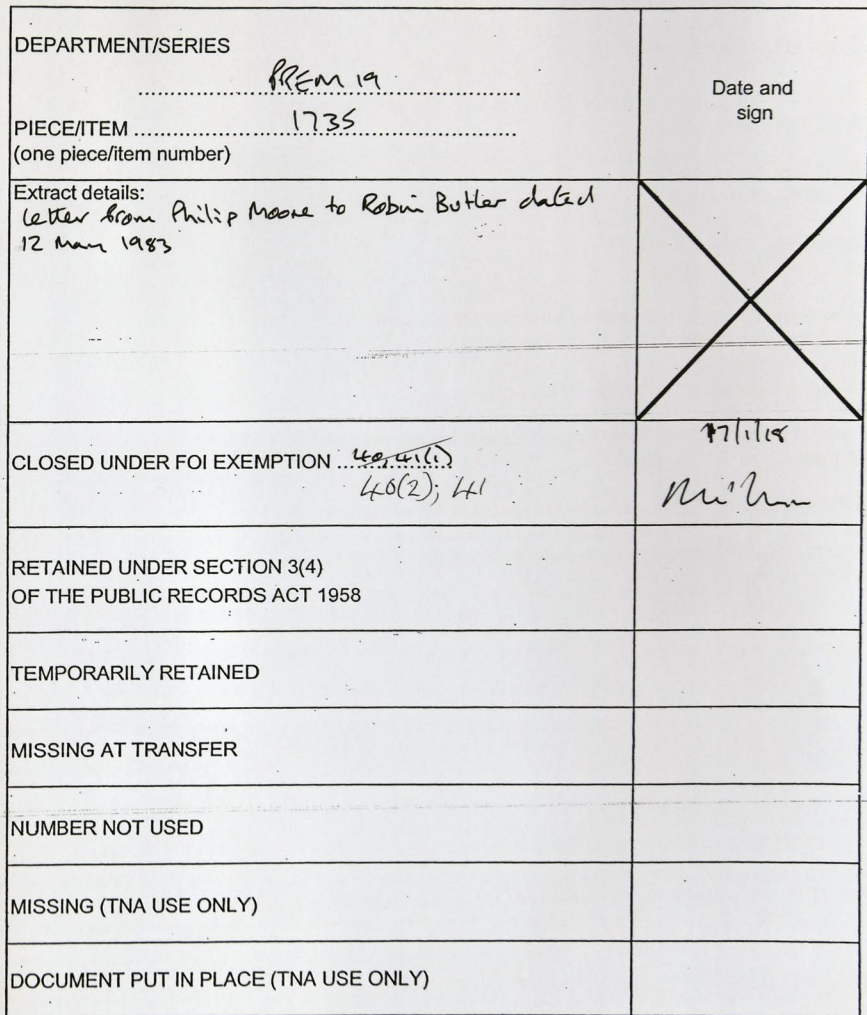 DEPARTMENT/SERIES
PREM 19
Date and
sign
PIECE/ITEM 1735
(one piece/item number)
Extract details:
Letter from Philip Moore to Robin Butler dated
12 May 1983
17/1/18
CLOSED UNDER FOI EXEMPTION 40, 41(1)
40(2); 41
RETAINED UNDER SECTION 3(4)
OF THE PUBLIC RECORDS ACT 1958
TEMPORARILY RETAINED
MISSING AT TRANSFER
NUMBER NOT USED
MISSING (TNA USE ONLY)
DOCUMENT PUT IN PLACE (TNA USE ONLY)